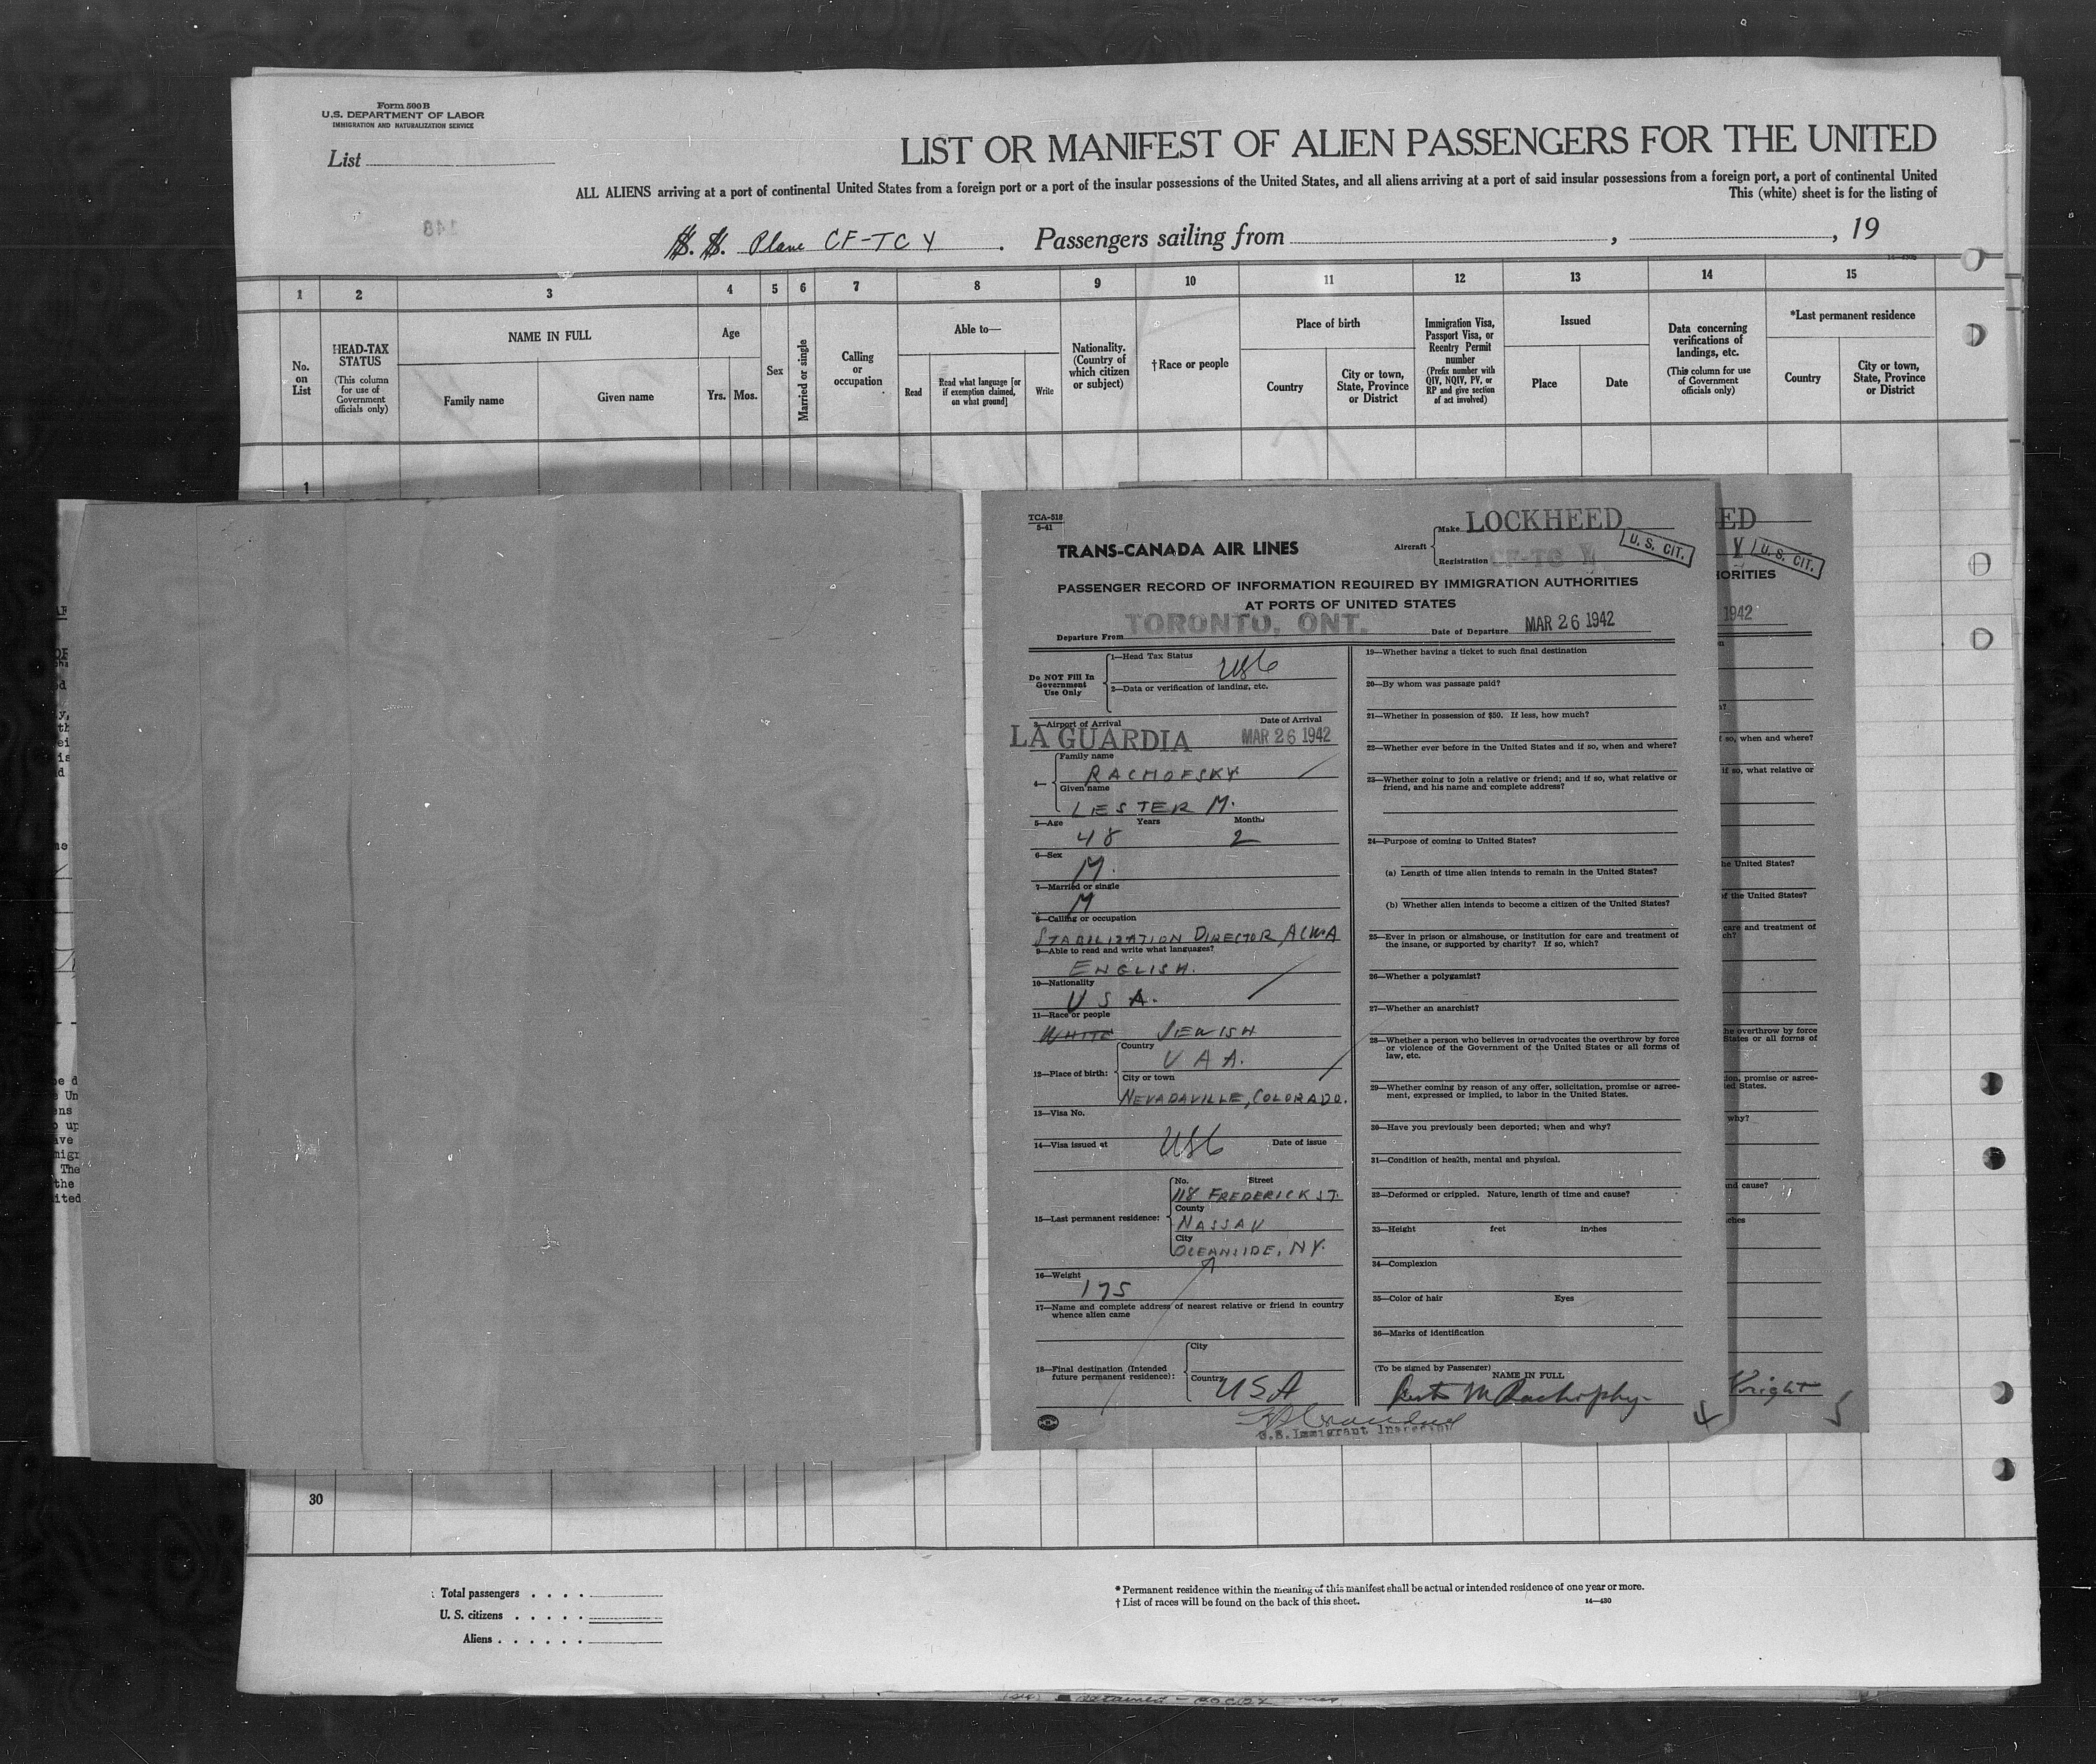 Form 500 B
U.S. DEPARTMENT OF LABOR
IMMIGRATION AND NATURALIZATION SERVICE
List
LIST OR MANIFEST OF ALIEN PASSENGERS FOR THE UNITED
ALL ALIENS arriving at a port of continental United States from a foreign port or a port of the insular possessions of the United States, and all aliens arriving at a port of said insular possessions from a foreign port, a port of continental United
This (white) sheet is for the listing of
S. S. Plane CF-TCY. Passengers sailing from , , 19
1 2 3 4 5 6 7 8 9 10 11 12 13 14 15
No. on List
HEAD-TAX STATUS
(This column for use of Government officials only)
NAME IN FULL
Family name
Given name
Age
Yrs. Mos.
Sex
Married or single
Calling or occupation
Able to—
Read
Read what language [or if exemption claimed, on what ground]
Write
Nationality. (Country of which citizen or subject)
†Race or people
Place of birth
Country
City or town, State, Province or District
Immigration Visa, Passport Visa, or Reentry Permit number
(Prefix number with QIV, NQIV, PV, or RP and give section of act involved)
Issued
Place
Date
Data concerning verifications of landings, etc.
(This column for use of Government officials only)
*Last permanent residence
Country
City or town, State, Province or District
1
TCA-518
5-41
TRANS-CANADA AIR LINES
Aircraft
Make LOCKHEED
Registration CF-TC Y
U. S. CIT.
PASSENGER RECORD OF INFORMATION REQUIRED BY IMMIGRATION AUTHORITIES
AT PORTS OF UNITED STATES
Departure From TORONTO, ONT. Date of Departure MAR 26 1942
Do NOT Fill In Government Use Only
1—Head Tax Status USC
2—Data or verification of landing, etc.
3—Airport of Arrival Date of Arrival
LA GUARDIA MAR 26 1942
4—
Family name
RACHOFSKY
Given name
LESTER M.
5—Age Years Months
48 2
6—Sex
M.
7—Married or single
M
8—Calling or occupation
STABILIZATION DIRECTOR ACWA
9—Able to read and write what languages?
ENGLISH.
10—Nationality
U S A.
11—Race or people
WHITE JEWISH
12—Place of birth:
Country
U A A.
City or town
NEVADAVILLE, COLORADO.
13—Visa No.
14—Visa issued at USC Date of issue
15—Last permanent residence:
No. Street
118 FREDERICK ST.
County
NASSAU
City
OCEANSIDE, N.Y.
16—Weight
175
17—Name and complete address of nearest relative or friend in country whence alien came
18—Final destination (Intended future permanent residence):
City
Country USA
19—Whether having a ticket to such final destination
20—By whom was passage paid?
21—Whether in possession of $50. If less, how much?
22—Whether ever before in the United States and if so, when and where?
23—Whether going to join a relative or friend; and if so, what relative or
friend, and his name and complete address?
24—Purpose of coming to United States?
(a) Length of time alien intends to remain in the United States?
(b) Whether alien intends to become a citizen of the United States?
25—Ever in prison or almshouse, or institution for care and treatment of
the insane, or supported by charity? If so, which?
26—Whether a polygamist?
27—Whether an anarchist?
28—Whether a person who believes in or advocates the overthrow by force
or violence of the Government of the United States or all forms of
law, etc.
29—Whether coming by reason of any offer, solicitation, promise or agree-
ment, expressed or implied, to labor in the United States.
30—Have you previously been deported; when and why?
31—Condition of health, mental and physical.
32—Deformed or crippled. Nature, length of time and cause?
33—Height feet inches
34—Complexion
35—Color of hair Eyes
36—Marks of identification
(To be signed by Passenger)
NAME IN FULL
Lester M Rachofsky
4
U.S. Immigrant Inspector
ED
Y
U. S. CIT.
HORITIES
1942
if so, when and where?
if so, what relative or
he United States?
of the United States?
care and treatment of
ch?
he overthrow by force
States or all forms of
ion, promise or agree-
ted States.
why?
nd cause?
ches
Wright
5
30
Total passengers
U. S. citizens
Aliens
* Permanent residence within the meaning of this manifest shall be actual or intended residence of one year or more.
† List of races will be found on the back of this sheet.
14—430